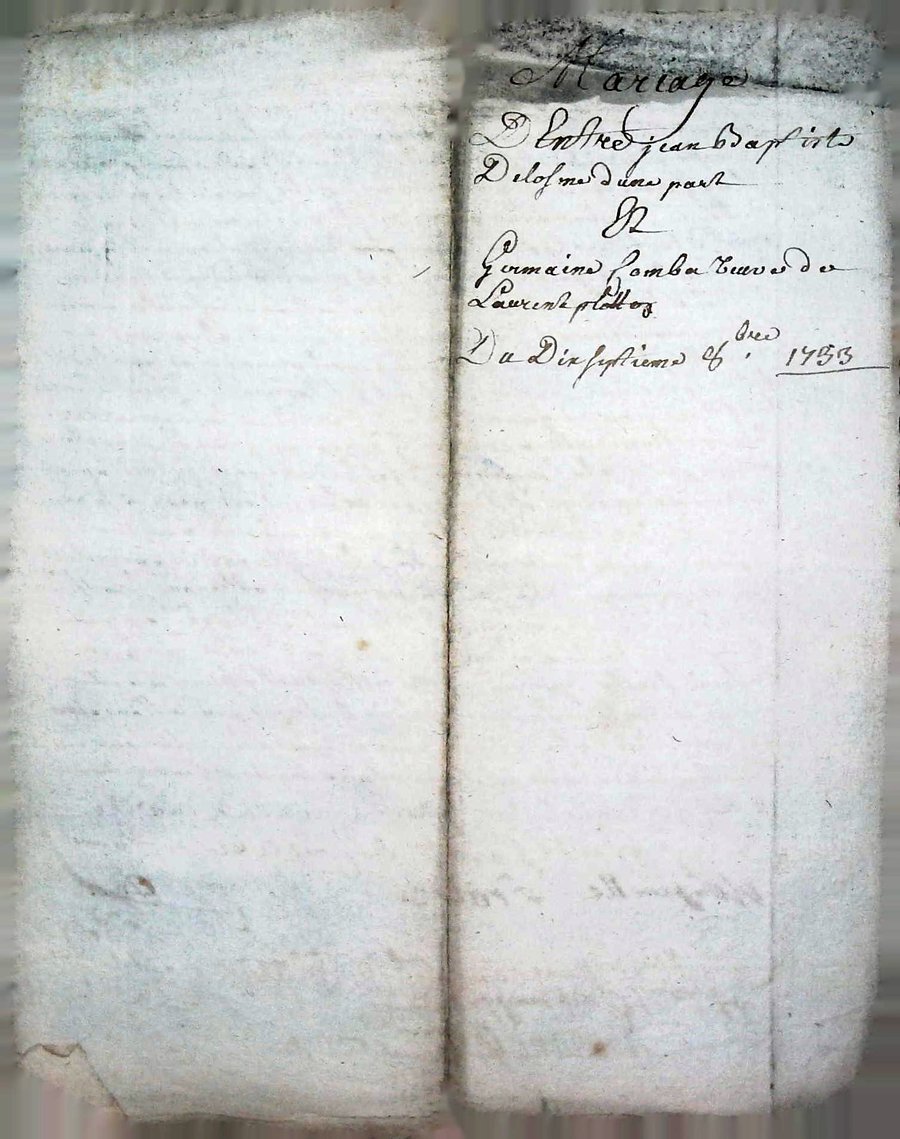 Mariage
D'Entre jean Baptiste
Delosme dune part
Et
Germaine Comba veuve de
Laurent
Du Dixseptieme 8.bre 1753